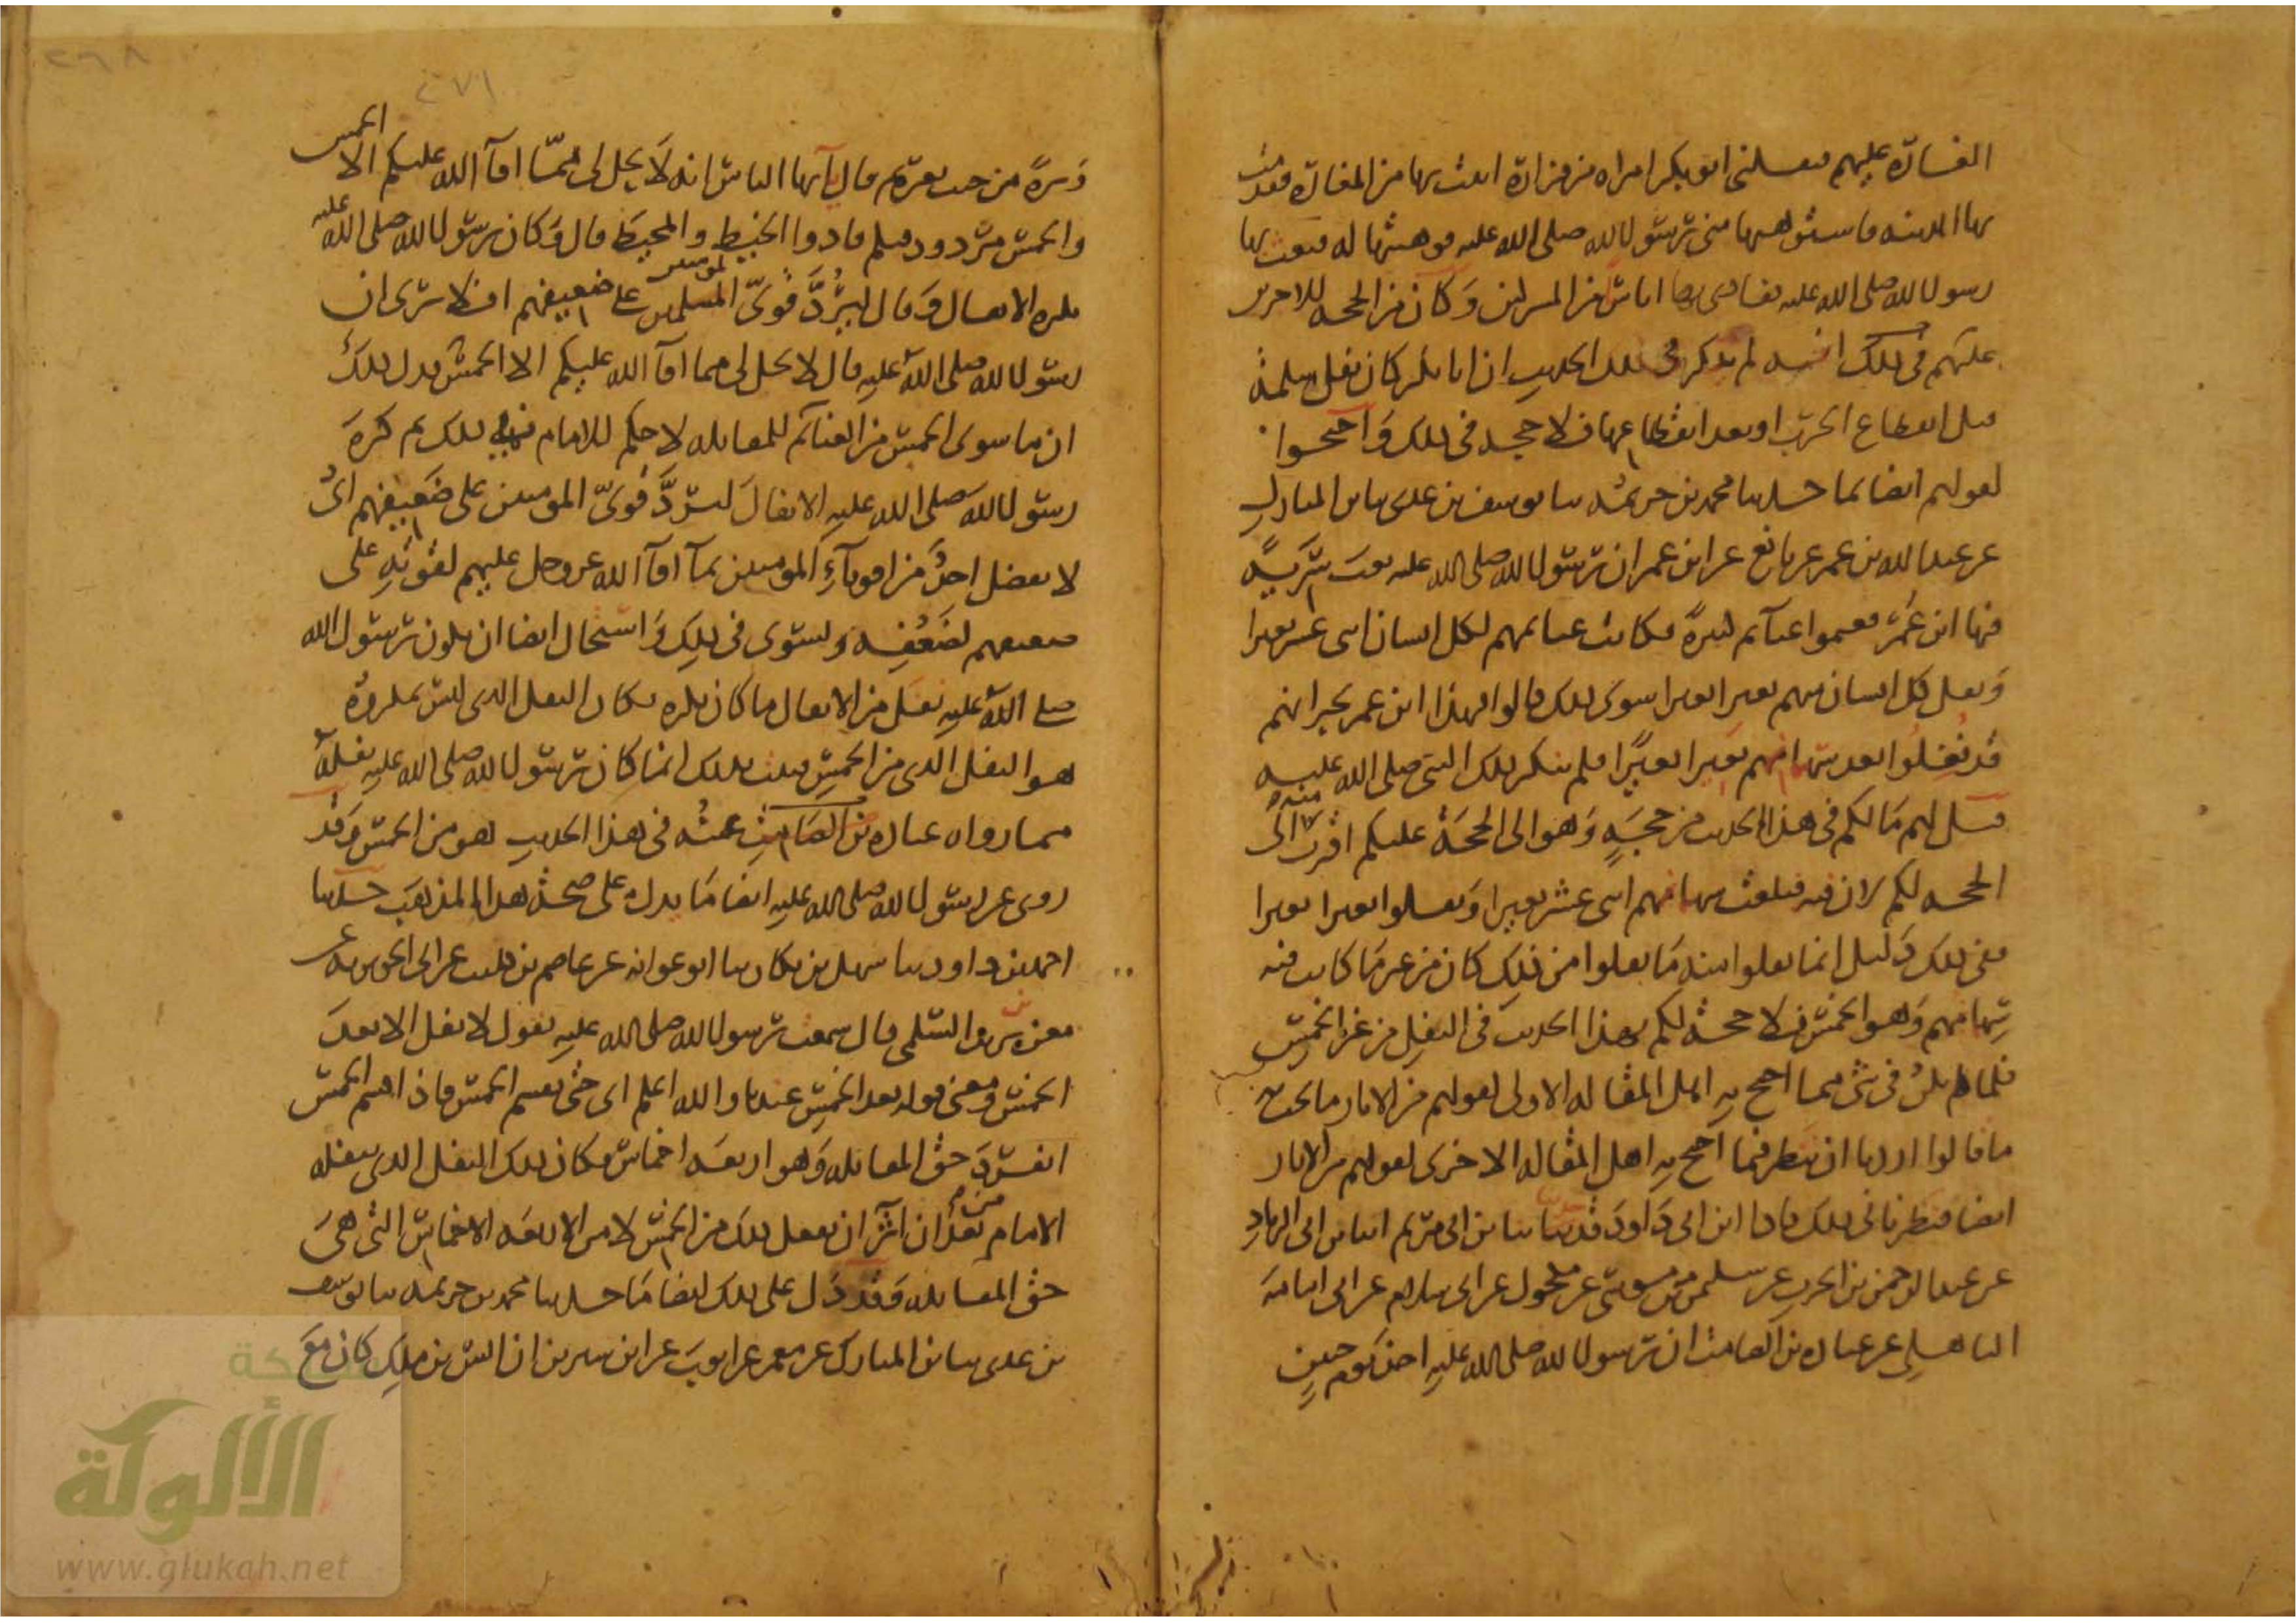 الغارة عليهم فنفلني ابو بكر امراه من فزارة اتيت بها من الغارة فقدمت
بها المدينه فاستوهبها مني رسول الله صلى الله عليه فوهبتها له فبعث بها
رسول الله صلى الله عليه ففادى بها اناسا من المسلمين وكان من الحجه للاخرين
عليهم في ذلك انه لم يذكر في ذلك الحديث ان ابا بكر كان نفل سلمة
قبل انقطاع الحرب او بعد انقطاعها فلا حجه في ذلك واحتجوا
لقولهم ايضا بما حدثنا محمد بن خزيمه نا يوسف بن عدي نا بن المبارك
عن عبيد الله بن عمر عن نافع عن ابن عمر ان رسول الله صلى الله عليه بعث سرية
فيها ابن عمر فغنموا غنائم كثيرة فكانت غنائمهم لكل انسان اثني عشر بعيرا
ونفل كل انسان منهم بعيرا بعيرا سوى ذلك قالوا فهذا ابن عمر يخبر انهم
قد نفلوا بعد سهامهم بعيرا بعيرا فلم ينكر ذلك النبي صلى الله عليه
قيل لهم ما لكم في هذا الحديث من حجة وهو الى الحجة عليكم اقرب منه الى
الحجه لكم لان فيه فبلغت سهامهم اثني عشر بعيرا ونفلوا بعيرا بعيرا
ففي ذلك دليل ان ما نفلوا منه ما نفلوا من ذلك كان من غير ما كانت فيه
سهامهم وهو الخمس فلا حجة لكم بهذا الحديث في النفل من غير الخمس
فلما لم يكن في شي مما احتج به اهل المقاله الاولى لقولهم من الاثار ما يجب به
ما قالوا اردنا ان ننظر فيما احتج به اهل المقاله الاخرى لقولهم من الاثار
ايضا فنظرنا في ذلك فاذا ابن ابي داود قد حدثنا نا بن ابي مريم انا بن ابي الزناد
عن عبد الرحمن بن الحرث عن سليمن بن موسى عن مكحول عن ابي سلام عن ابي امامة
الباهلي عن عباده بن الصامت ان رسول الله صلى الله عليه اخذ يوم حنين
٢٦٨
٢٧١
وبرة من جنب بعير ثم قال يا ايها الناس انه لا يحل لي مما افآ الله عليكم الا الخمس
والخمس مردود فيكم فادوا الخيط والمخيط قال وكان رسول الله صلى الله عليه
يكره الانفال وقال ليرد قوي المسلمين على ضعيفهم افلا ترى ان
رسول الله صلى الله عليه قال لا يحل لي مما افآ الله عليكم الا الخمس فدل ذلك
ان ما سوى الخمس من الغنائم للمقاتله لا حكم للامام فيه ذلك ثم كره
رسول الله صلى الله عليه الانفال ليرد قوي المومنين على ضعيفهم اي
لا يفضل احد من اقويآء المومنين بمآ افآ الله عز وجل عليهم لقوته على
ضعيفهم لضعفه ويستوي في ذلك واستحال ايضا ان يكون رسول الله
صلى الله عليه نفل من الانفال ما كان يكره فكان النفل الذي ليس بمكروه
هو النفل الذي من الخمس فثبت بذلك ان ما كان رسول الله صلى الله عليه نفله
مما رواه عباده بن الصامت عنه في هذا الحديث هو من الخمس وقد
روي عن رسول الله صلى الله عليه ايضا ما يدل على صحة هذا المذهب حدثنا
احمد بن داود نا سهل بن بكار نا ابو عوانه عن عاصم بن كليب عن ابي الجويريه عن
معن بن يزيد السلمي قال سمعت رسول الله صلى الله عليه يقول لا نفل الا بعد
الخمس ومعنى قوله بعد الخمس عندنا والله اعلم اي حتى يقسم الخمس فاذا قسم الخمس
انفرد حق المقاتله وهو اربعه اخماس فكان ذلك النفل الذي ينفله
الامام من بعد ان آثر ان يفعل ذلك من الخمس لا من الاربعه الاخماس التي هي
حق المقاتله وقد دل على ذلك ايضا ما حدثنا محمد بن خزيمه نا يوسف
بن عدي نا بن المبارك عن معمر عن ايوب عن ابن سيرين ان انس بن ملك كان مع
شبكة
الألوكة
www.alukah.net